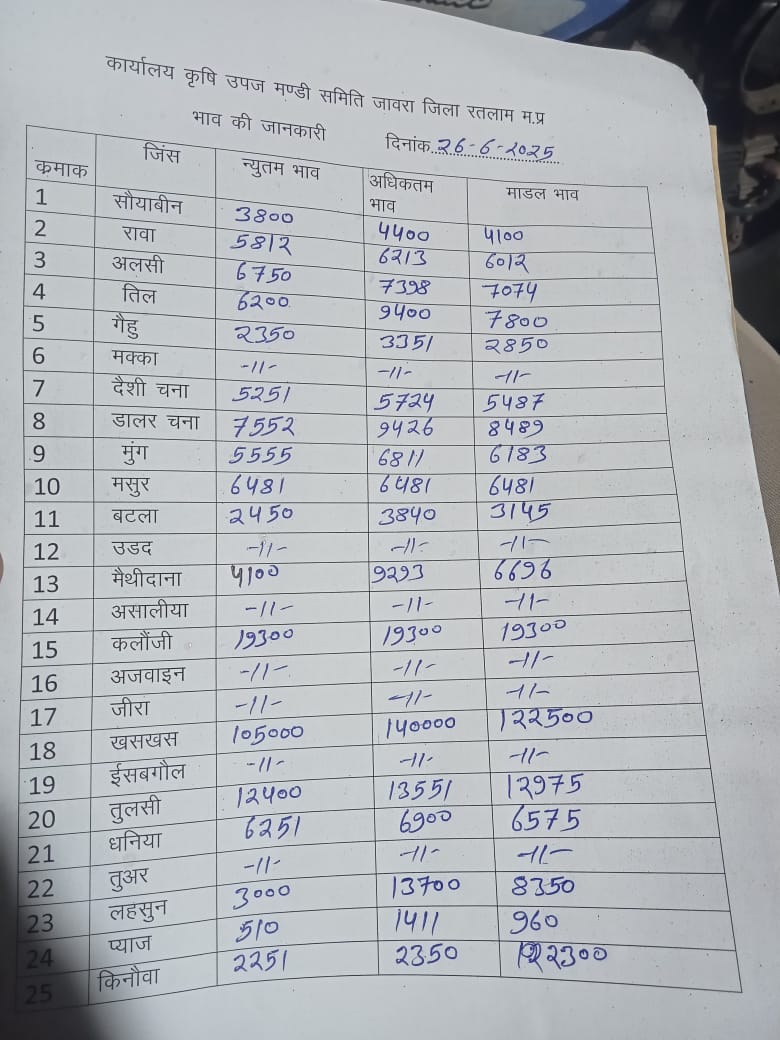 कार्यालय कृषि उपज मण्डी समिति जावरा जिला रतलाम म.प्र
भाव की जानकारी दिनांक..26-6-2025
क्रमाक जिंस न्युतम भाव अधिकतम भाव माडल भाव
1 सौयाबीन 3800 4400 4100
2 रावा 5812 6213 6012
3 अलसी 6750 7398 7074
4 तिल 6200 9400 7800
5 गैहु 2350 3351 2850
6 मक्का -11- -11- -11-
7 दैशी चना 5251 5724 5487
8 डालर चना 7552 9426 8489
9 मुंग 5555 6811 6183
10 मसुर 6481 6481 6481
11 बटला 2450 3840 3145
12 उडद -11- -11- -11-
13 मैथीदाना 4100 9293 6696
14 असालीया -11- -11- -11-
15 कलौंजी 19300 19300 19300
16 अजवाइन -11- -11- -11-
17 जीरा -11- -11- -11-
18 खसखस 105000 140000 122500
19 ईसबगौल -11- -11- -11-
20 तुलसी 12400 13551 12975
21 धनिया 6251 6900 6575
22 तुअर -11- -11- -11-
23 लहसुन 3000 13700 8350
24 प्याज 510 1411 960
25 किनौवा 2251 2350 2300